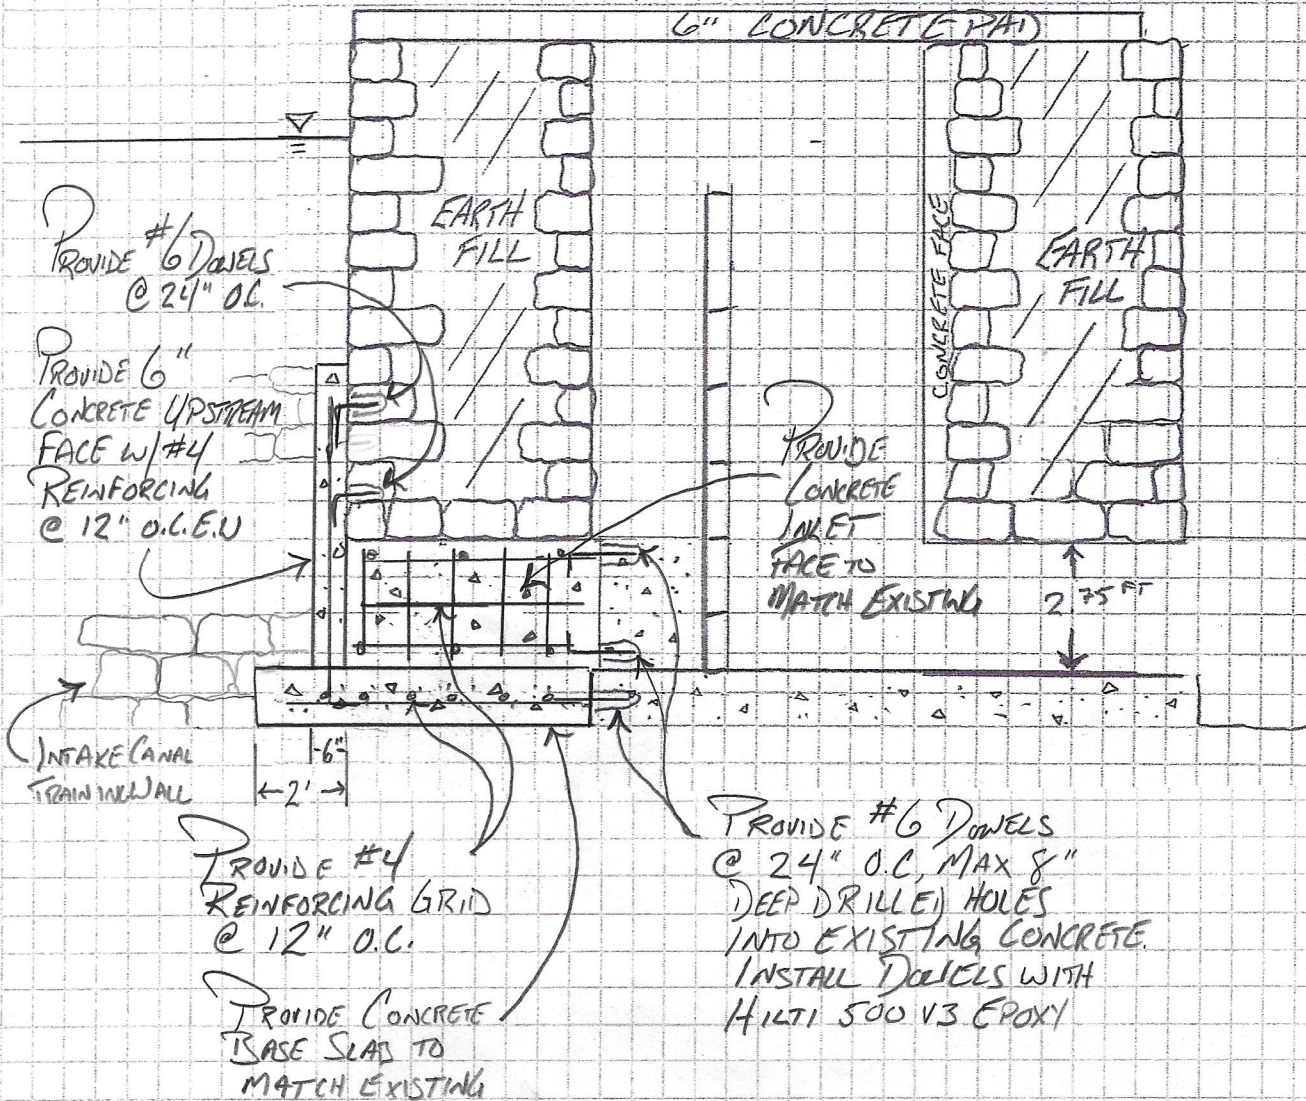 6" CONCRETE PAD
EARTH
FILL
CONCRETE FACE
EARTH
FILL
PROVIDE #6 DOWELS
@ 24" O.C.
PROVIDE 6"
CONCRETE UPSTREAM
FACE W/ #4
REINFORCING
@ 12" O.C.E.W
PROVIDE
CONCRETE
INLET
FACE TO
MATCH EXISTING
2 75 FT
INTAKE CANAL
TRAINING WALL
6"
2'
PROVIDE #4
REINFORCING GRID
@ 12" O.C.
PROVIDE CONCRETE
BASE SLAB TO
MATCH EXISTING
PROVIDE #6 DOWELS
@ 24" O.C, MAX 8"
DEEP DRILLED HOLES
INTO EXISTING CONCRETE.
INSTALL DOWELS WITH
HILTI 500 V3 EPOXY